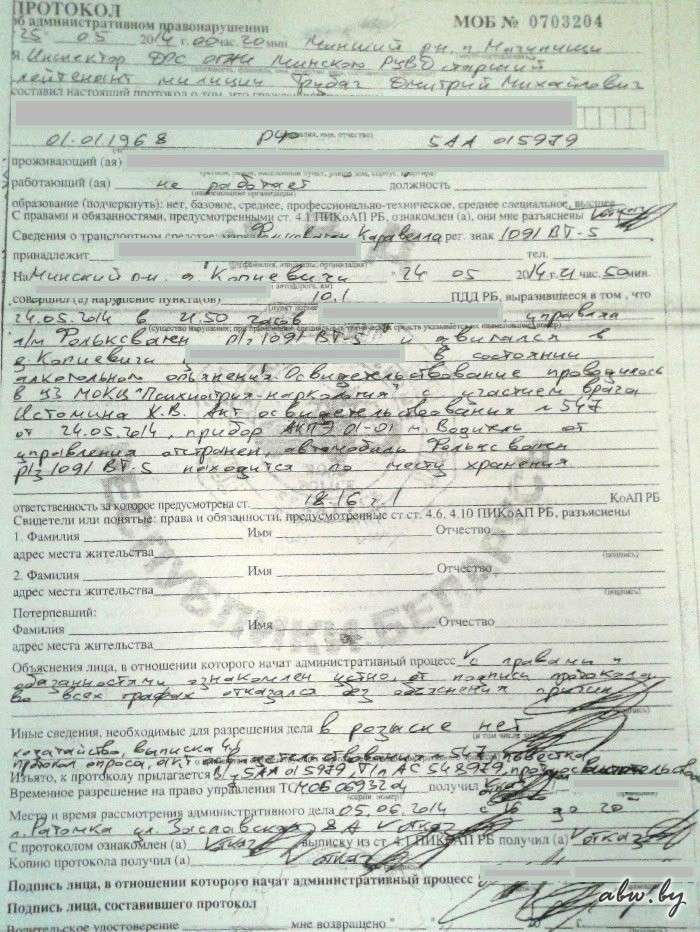 ПРОТОКОЛ
об административном правонарушении
МОБ № 0703204
25 05 2014 г. 00 час. 20 мин. Минский рн, п. Мачулищи
Я, Инспектор ДПС ОГАИ Минского РУВД старший
лейтенант милиции Дмитрий Михайлович
составил настоящий протокол о том, что гражданин
01.01.1968 РФ 5АА 015979
проживающий (ая)
работающий (ая) не работает должность
образование (подчеркнуть): нет, базовое, среднее, профессионально-техническое, среднее специальное, высшее
С правами и обязанностями, предусмотренными ст. 4.1 ПИКоАП РБ, ознакомлен (а), они мне разъяснены
Сведения о транспортном средстве: марка Фольксваген Каравелла рег. знак 1091 ВТ-5
принадлежит тел.
(фамилия, инициалы, организация)
На Минский р-н. д. Копиевичи "24" 05 2014 г. 21 час. 50 мин.
совершил (а) нарушение пункта(ов) 10.1 ПДД РБ, выразившееся в том, что
24.05.2014 в 21.50 часов управлял
а/м Фольксваген р/з 1091 ВТ-5 и двигался в
д. Копиевичи в состоянии
алкогольного опьянения. Освидетельствование проводилось
в УЗ МОКЦ "Психиатрия-наркология" с участием врача
Истомина К.В. Акт освидетельствования № 547
от 24.05.2014, прибор АКПЭ 01-01 м. Водитель от
управления отстранен, автомобиль Фольксваген
р/з 1091 ВТ-5 находится по месту хранения
ответственность за которое предусмотрена ст. 18.16 ч. 1 КоАП РБ
Свидетели или понятые: права и обязанности, предусмотренные ст ст. 4.6, 4.10 ПИКоАП РБ, разъяснены
1. Фамилия Имя Отчество
адрес места жительства (подпись)
2. Фамилия Имя Отчество
адрес места жительства (подпись)
Потерпевший:
Фамилия Имя Отчество
адрес места жительства (подпись)
РЕСПУБЛИКИ БЕЛАРУСЬ
Объяснения лица, в отношении которого начат административный процесс с правами и
обязанностями ознакомлен устно от подписи протокола
во всех графах отказался без объяснения причин
Иные сведения, необходимые для разрешения дела в розыске нет
ходатайство, выписка
протокол опроса, акт освидетельствования № 547, повестка
Изъято, к протоколу прилагается В/у 5АА 015979, Т/п АС 548979
Временное разрешение на право управления ТС МОБ 0693204 получил
Место и время рассмотрения административного дела 05.06.2014 с 16 до 20
п. Ратомка ул. Заславская 8А отказ
С протоколом ознакомлен (а) отказ выписку из ст. 4.1 ПИКоАП РБ получил (а) отказ
Копию протокола получил (а) отказ
Подпись лица, в отношении которого начат административный процесс
Подпись лица, составившего протокол
Водительское удостоверение мне возвращено " " 20 г.
abw.by